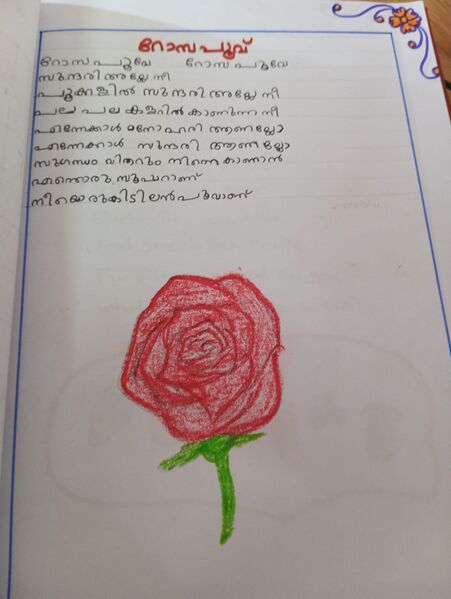 റോസപൂവ്
റോസ പൂവേ റോസ പൂവേ
സുന്ദരി അല്ലേ നീ
പൂക്കളിൽ സുന്ദരി അല്ലേ നീ
പല പല കളറിൽ കാണുന്ന നീ
എന്നേക്കാൾ മനോഹരി ആണല്ലോ
എന്നേക്കാൾ സുന്ദരി ആണല്ലോ
സുഗന്ധം വിതറും നിന്നെ കാണാൻ
എന്തൊരു സൂപ്പറാണ്
നീയെരുകിടിലൻപൂവാണ്